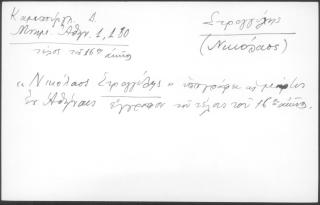 Καμπούρογλ. Δ.
Μνημ. Ἀθην. 1, 180
τέλος τοῦ 16ου αἰῶνος
Στρογγύλης
(Νικόλαος)
« Νικόλαος Στρογγύλης » ὑπογράφει ὡς μάρτυς
ἐν Ἀθήναις ἔγγραφον τοῦ τέλους τοῦ 16ου αἰῶνος.